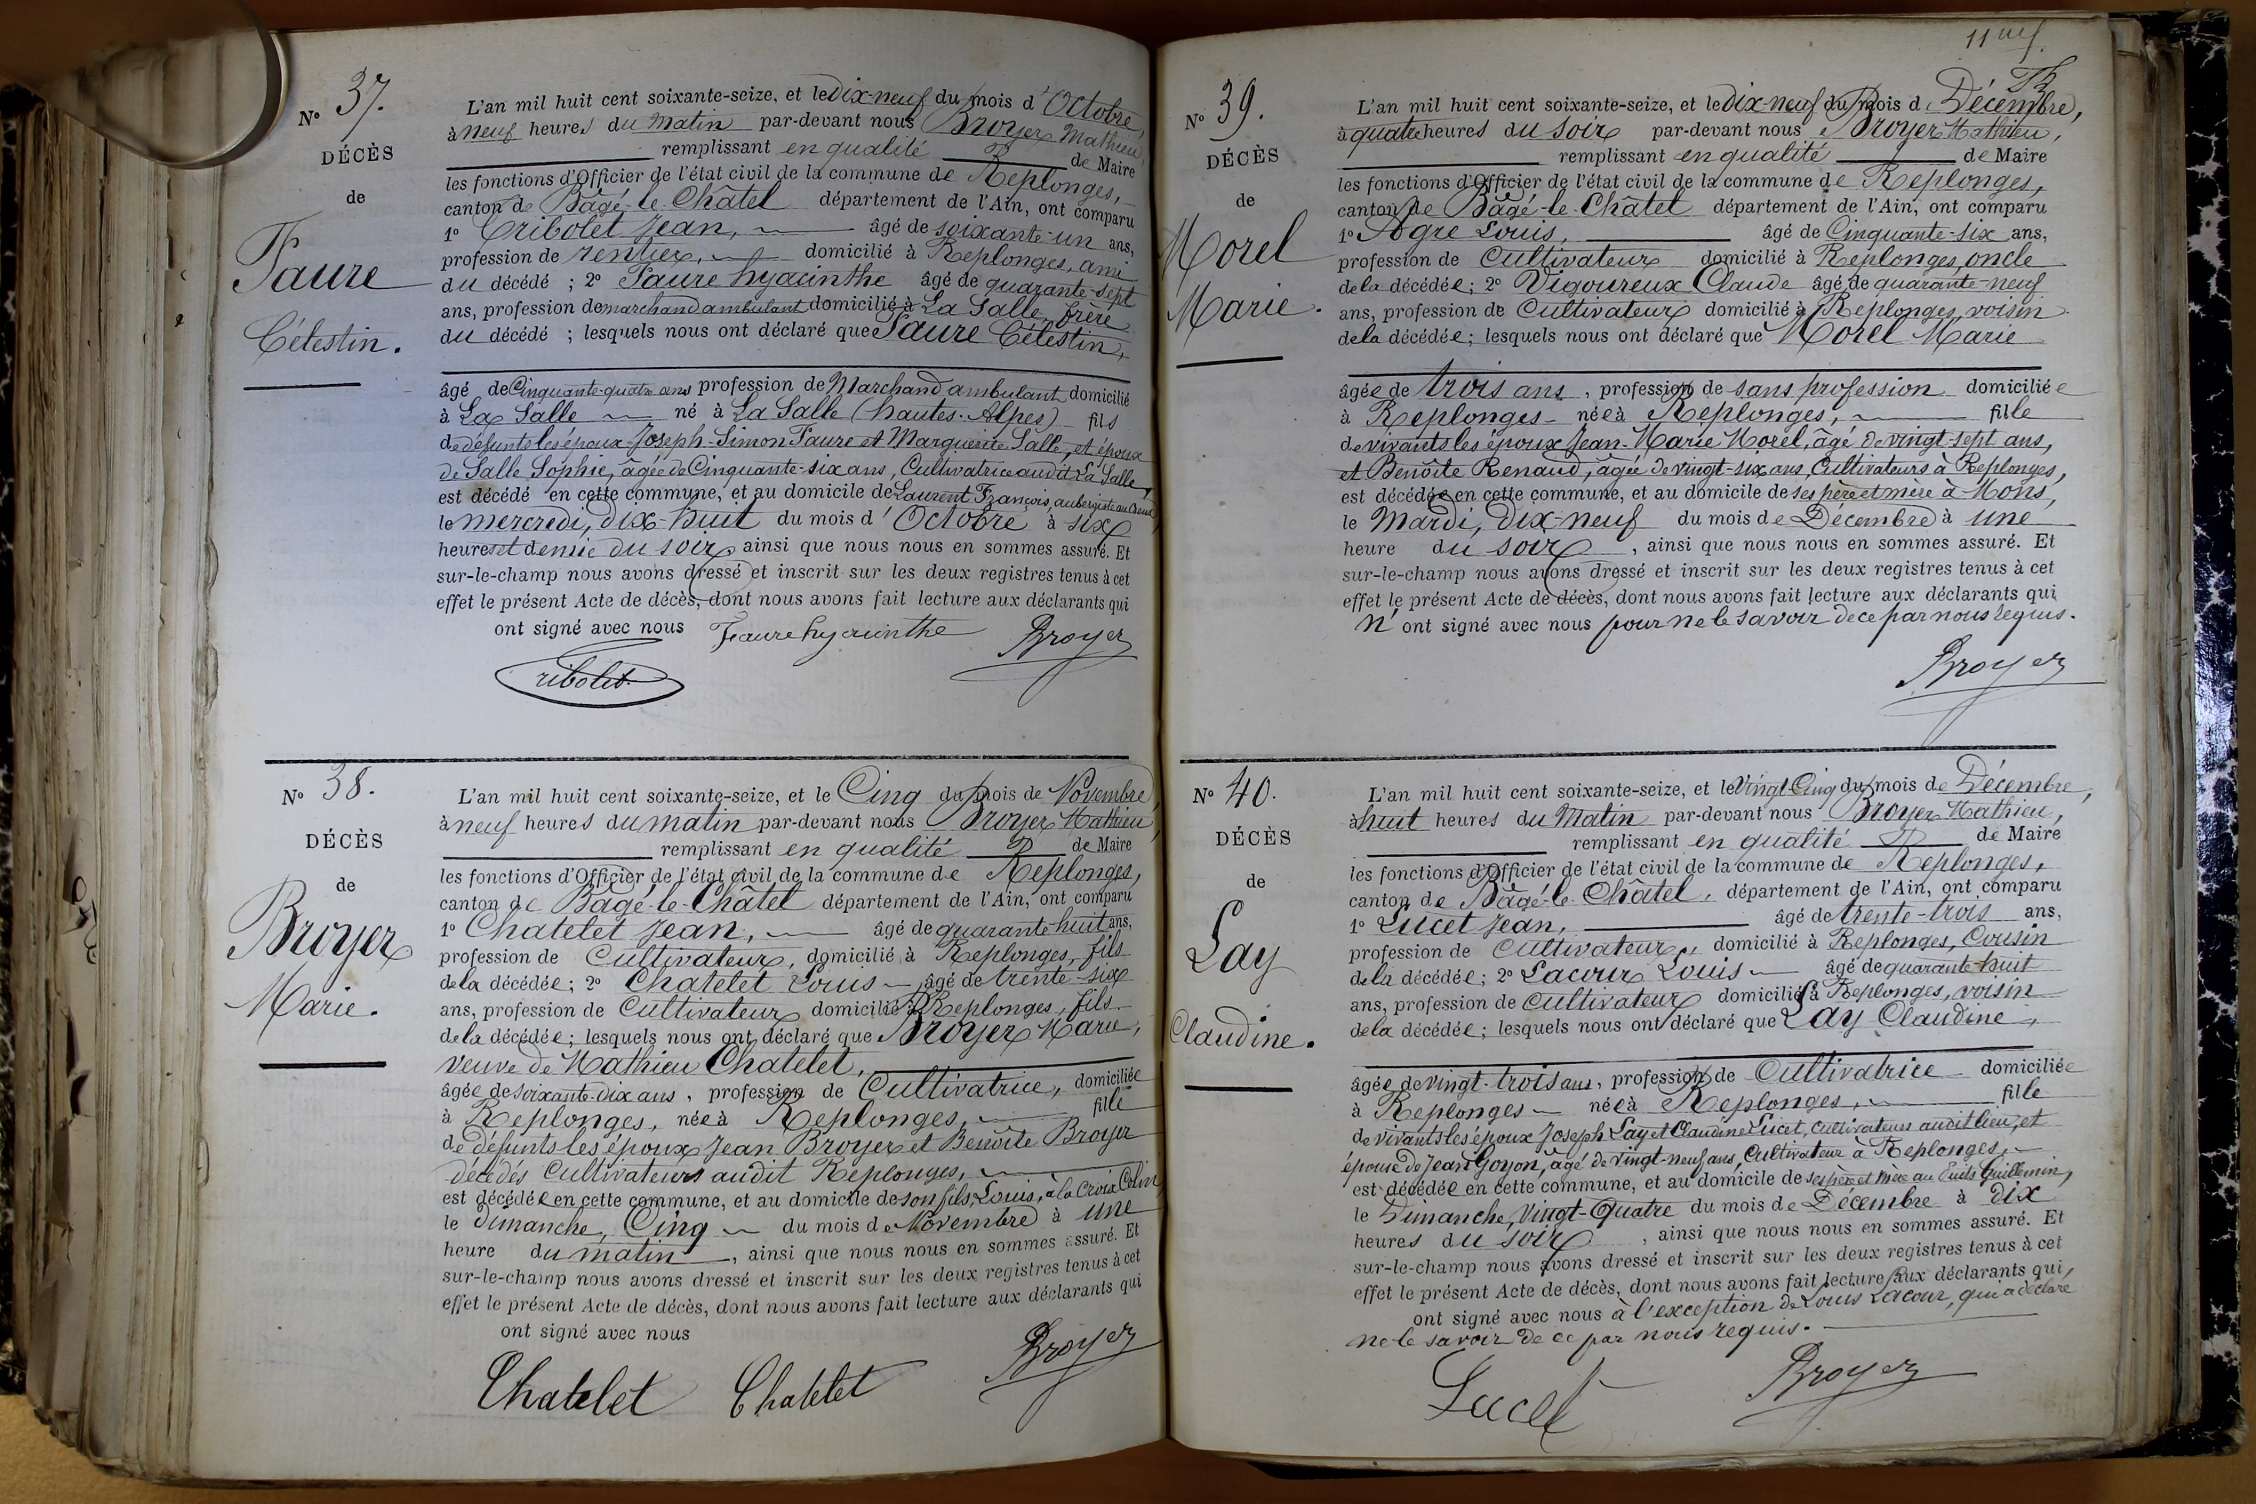 N° 37.
DÉCÈS
de
Faure
Célestin.
L'an mil huit cent soixante-seize, et le dix-neuf du mois d'Octobre,
à neuf heures du matin par-devant nous Broyer Mathieu,
remplissant en qualité de Maire
les fonctions d'Officier de l'état civil de la commune de Replonges,
canton de Bâgé-le-Châtel département de l'Ain, ont comparu
1° Cribolet Jean, âgé de soixante-un ans,
profession de rentier, domicilié à Replonges, ami
du décédé ; 2° Faure hyacinthe âgé de quarante-sept
ans, profession de marchand ambulant domicilié à La Salle, frère
du décédé ; lesquels nous ont déclaré que Faure Célestin,
âgé de Cinquante-quatre ans profession de Marchand ambulant domicilié
à La Salle né à La Salle (hautes-Alpes) fils
de défunts les époux Joseph-Simon Faure et Marguerite Salle, et époux
de Salle Sophie, âgée de Cinquante-six ans, Cultivatrice audit La Salle,
est décédé en cette commune, et au domicile de Laurent François, aubergiste au
le mercredi, dix-huit du mois d'Octobre à six
heures et demie du soir, ainsi que nous nous en sommes assuré. Et
sur-le-champ nous avons dressé et inscrit sur les deux registres tenus à cet
effet le présent Acte de décès, dont nous avons fait lecture aux déclarants qui
ont signé avec nous Faure hyacinthe Broyer
ribolet
N° 38.
DÉCÈS
de
Broyer
Marie.
L'an mil huit cent soixante-seize, et le Cinq du mois de Novembre,
à neuf heures du matin par-devant nous Broyer Mathieu,
remplissant en qualité de Maire
les fonctions d'Officier de l'état civil de la commune de Replonges,
canton de Bâgé-le-Châtel département de l'Ain, ont comparu
1° Chatelet Jean, âgé de quarante-huit ans,
profession de Cultivateur, domicilié à Replonges, fils
de la décédée ; 2° Chatelet Louis âgé de trente-six
ans, profession de Cultivateur domicilié à Replonges, fils
de la décédée ; lesquels nous ont déclaré que Broyer Marie,
veuve de Mathieu Chatelet,
âgée de soixante-dix ans, profession de Cultivatrice, domiciliée
à Replonges, née à Replonges, fille
de défunts les époux Jean Broyer et Benoîte Broyer
décédés Cultivateurs audit Replonges,
est décédée en cette commune, et au domicile de son fils, Louis, à la Croix Colin,
le dimanche, Cinq du mois de Novembre à une
heure du matin, ainsi que nous nous en sommes assuré. Et
sur-le-champ nous avons dressé et inscrit sur les deux registres tenus à cet
effet le présent Acte de décès, dont nous avons fait lecture aux déclarants qui
ont signé avec nous
Chatelet Chatelet Broyer
N° 39.
DÉCÈS
de
Morel
Marie.
L'an mil huit cent soixante-seize, et le dix-neuf du mois de Décembre,
à quatre heures du soir par-devant nous Broyer Mathieu,
remplissant en qualité de Maire
les fonctions d'Officier de l'état civil de la commune de Replonges,
canton de Bâgé-le-Châtel département de l'Ain, ont comparu
1° Agre Louis, âgé de Cinquante-six ans,
profession de Cultivateur domicilié à Replonges, oncle
de la décédée ; 2° Vigoureux Claude âgé de quarante-neuf
ans, profession de Cultivateur domicilié à Replonges, voisin
de la décédée ; lesquels nous ont déclaré que Morel Marie
âgée de trois ans, profession de sans profession domiciliée
à Replonges née à Replonges, fille
de vivants les époux Jean-Marie Morel, âgé de vingt-sept ans,
et Benoîte Renaud, âgée de vingt-six ans, Cultivateurs à Replonges,
est décédée en cette commune, et au domicile de ses père et mère à Mons,
le Mardi, dix-neuf du mois de Décembre à une
heure du soir, ainsi que nous nous en sommes assuré. Et
sur-le-champ nous avons dressé et inscrit sur les deux registres tenus à cet
effet le présent Acte de décès, dont nous avons fait lecture aux déclarants qui
n'ont signé avec nous pour ne le savoir de ce par nous requis.
Broyer
N° 40.
DÉCÈS
de
Lay
Claudine.
L'an mil huit cent soixante-seize, et le Vingt-Cinq du mois de Décembre,
à huit heures du Matin par-devant nous Broyer Mathieu,
remplissant en qualité de Maire
les fonctions d'Officier de l'état civil de la commune de Replonges,
canton de Bâgé-le-Châtel, département de l'Ain, ont comparu
1° Lucet Jean, âgé de trente-trois ans,
profession de Cultivateur, domicilié à Replonges, Cousin
de la décédée ; 2° Lacour Louis âgé de quarante-huit
ans, profession de Cultivateur domicilié à Replonges, voisin
de la décédée ; lesquels nous ont déclaré que Lay Claudine,
âgée de vingt-trois ans, profession de Cultivatrice domiciliée
à Replonges née à Replonges, fille
de vivants les époux Joseph Lay et Claudine Lucet, Cultivateurs audit lieu, et
épouse de Jean Goyon, âgé de vingt-neuf ans, Cultivateur à Replonges,
est décédée en cette commune, et au domicile de ses père et mère au Guillemin,
le Dimanche, Vingt-Quatre du mois de Décembre à dix
heures du soir, ainsi que nous nous en sommes assuré. Et
sur-le-champ nous avons dressé et inscrit sur les deux registres tenus à cet
effet le présent Acte de décès, dont nous avons fait lecture aux déclarants qui,
ont signé avec nous à l'exception de Louis Lacour, qui a déclaré
ne le savoir de ce par nous requis.
Lucet Broyer